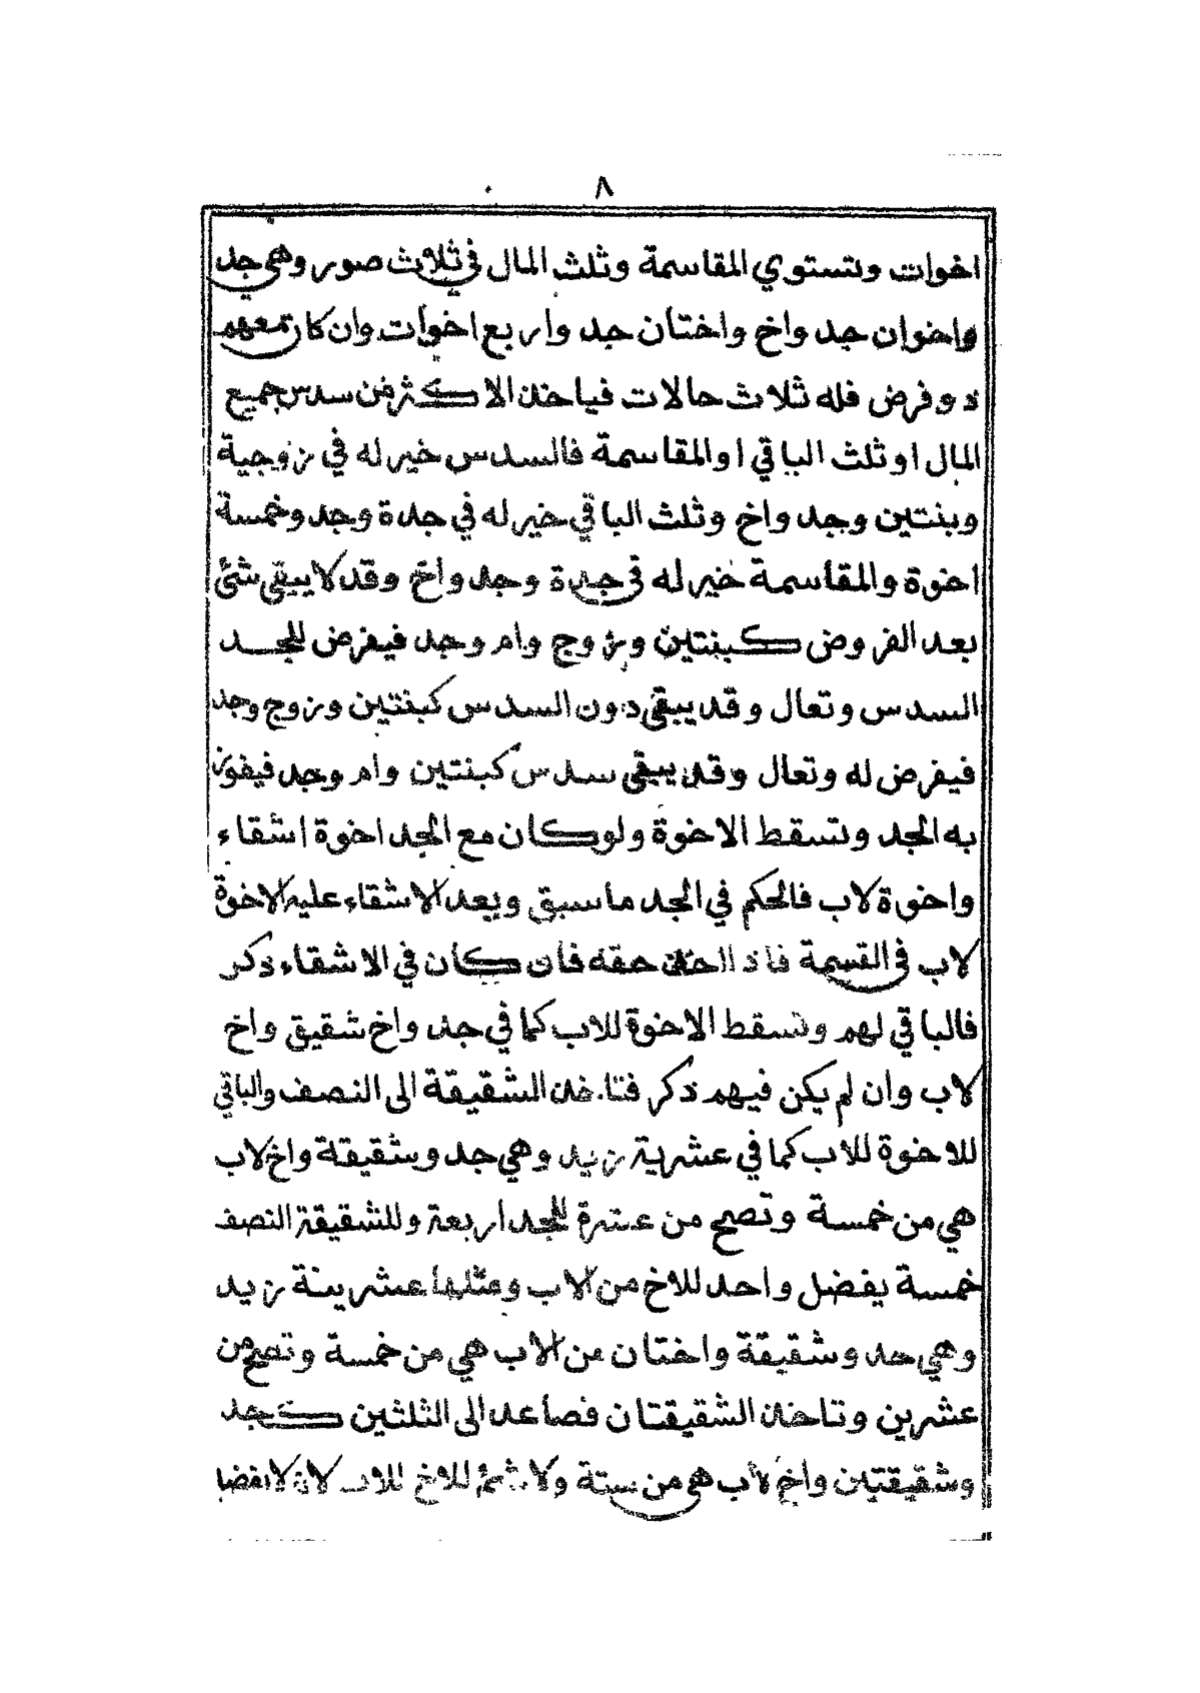 ٨
اخوات وتستوي المقاسمة وثلث المال في ثلاث صور وهي جد
واخوان جد واخ واختان جد واربع اخوات وان كان معهم
ذو فرض فله ثلاث حالات فياخذ الاكثر من سدس جميع
المال او ثلث الباقي او المقاسمة فالسدس خير له في زوجية
وبنتين وجد واخ وثلث الباقي خير له في جدة وجد وخمسة
اخوة والمقاسمة خير له في جدة وجد واخ وقد لا يبقى شئ
بعد الفروض كبنتين وزوج وام وجد فيفرض للجد
السدس وتعال وقد يبقى دون السدس كبنتين وزوج وجد
فيفرض له وتعال وقد يبقى سدس كبنتين وام وجد فيفوز
به الجد وتسقط الاخوة ولو كان مع الجد اخوة اشقاء
واخوة لاب فالحكم في الجد ما سبق ويعد الاشقاء عليه الاخوة
لاب في القسمة فاذا اخذ حقه فان كان في الاشقاء ذكر
فالباقي لهم وتسقط الاخوة للاب كما في جد واخ شقيق واخ
لاب وان لم يكن فيهم ذكر فتاخذ الشقيقة الى النصف والباقي
للاخوة للاب كما في عشرية زيد وهي جد وشقيقة واخ لاب
هي من خمسة وتصح من عشرة للجد اربعة وللشقيقة النصف
خمسة يفضل واحد للاخ من الاب ومثلها عشرينة زيد
وهي جد وشقيقة واختان من الاب هي من خمسة وتصح من
عشرين وتاخذ الشقيقتان فصاعدا الى الثلثين كجد
وشقيقتين واخ لاب هي من ستة ولا شئ للاخ للاب لانه لا يفضل